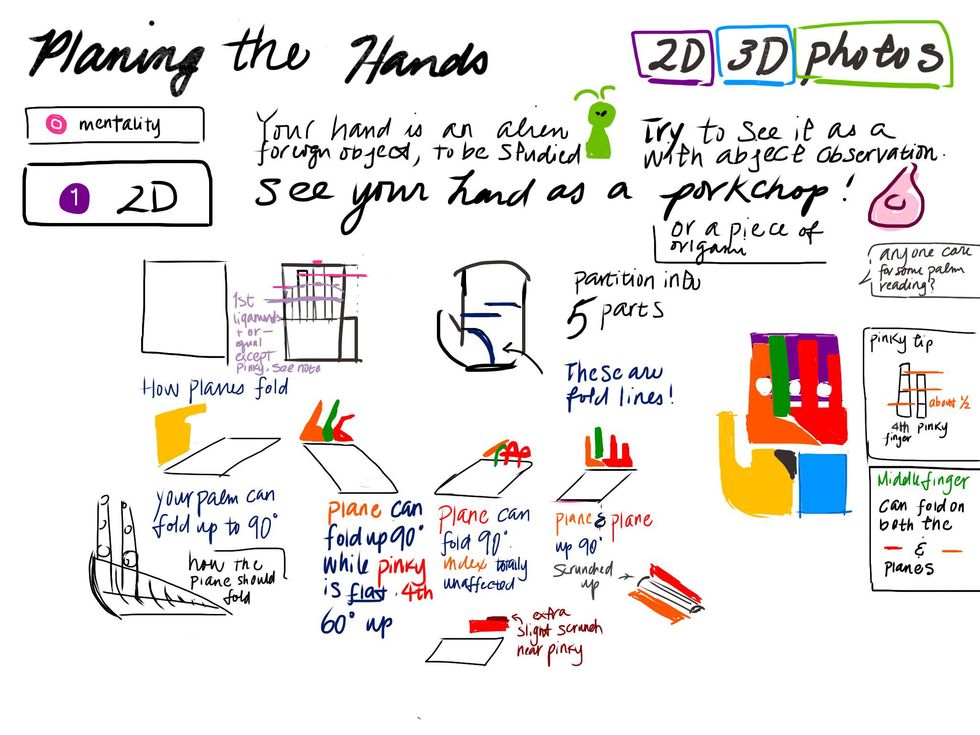 Planing the Hands
2D 3D photos
mentality
1 2D
Your hand is an alien
foreign object, to be studied
Try to see it as a
with abject observation.
See your hand as a porkchop!
or a piece of
origami
anyone care
for some palm
reading?
1st
ligaments
+ or -
equal
except
pinky. see note
partition into
5 parts
These are
fold lines!
How planes fold
your palm can
fold up to 90°
how the
plane should
fold
plane can
fold up 90°
while pinky
is flat. 4th
60° up
plane can
fold 90°.
index totally
unaffected
plane & plane
up 90°
scrunched
up
extra
slight scrunch
near pinky
pinky tip
about 1/2
4th pinky
finger
Middle finger
can fold on
both the
- & -
planes